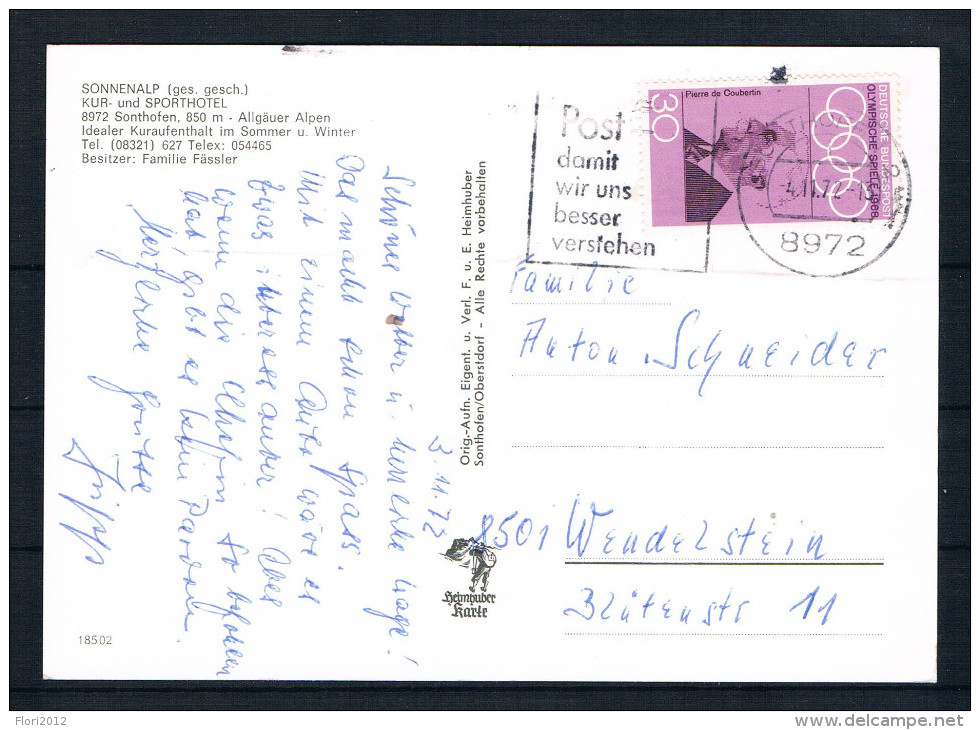 SONNENALP (ges. gesch.)
KUR- und SPORTHOTEL
8972 Sonthofen, 850 m - Allgäuer Alpen
Idealer Kuraufenthalt im Sommer u. Winter
Tel. (08321) 627 Telex: 054465
Besitzer: Familie Fässler
3.11.72
Schönes Wetter u. herrliche Lage!
Das macht schon Spass.
Mit einem Auto wäre es
etwas interessanter! Aber
wenn die Chefin so befohlen
hat, gibt es kein Pardon.
Herzliche Grüsse
18502
Orig.-Aufn. Eigent. u. Verl. F. u. E. Heimhuber
Sonthofen/Oberstdorf - Alle Rechte vorbehalten
Heimhuber
Karte
Post
damit
wir uns
besser
verstehen
30
Pierre de Coubertin
OLYMPISCHE SPIELE 1968
DEUTSCHE BUNDESPOST
-4.11.72-
8972
Familie
Anton Schneider
8501 Wendelstein
Blütenstr 11
Flori2012
delcampe.net